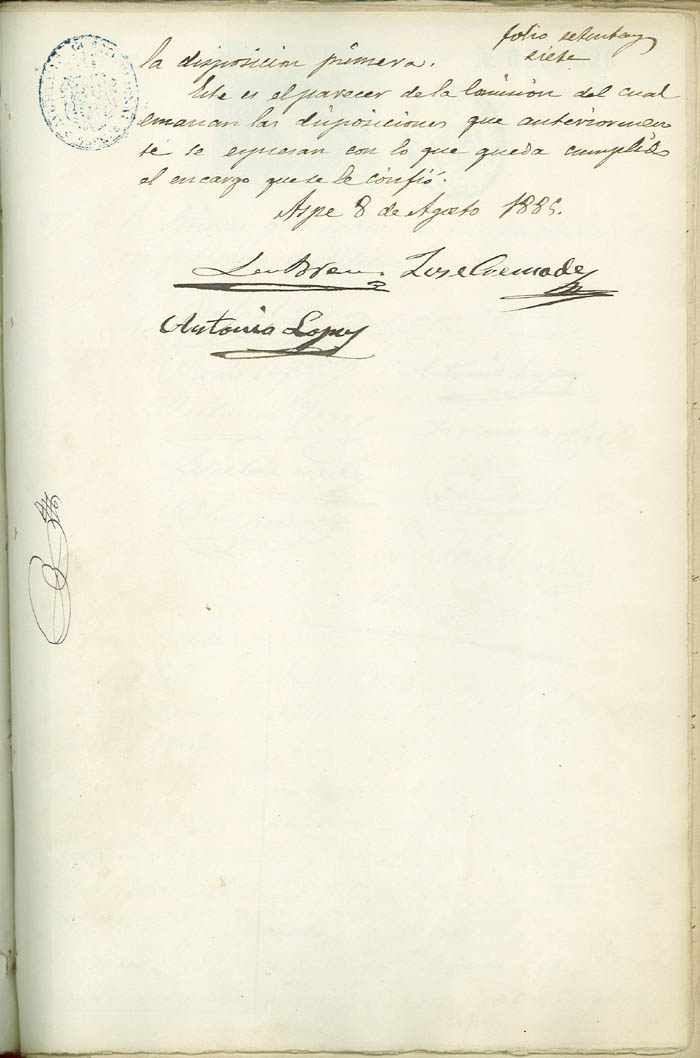 folio setenta y
siete
la disposicion primera.
Este es el parecer de la Comision del cual
emanan las disposiciones que anteriormen
te se espresan con lo que queda cumplido
el encargo que se le confió.
Aspe 8 de Agosto 1885.
Jose Cremades
Antonio Lopez